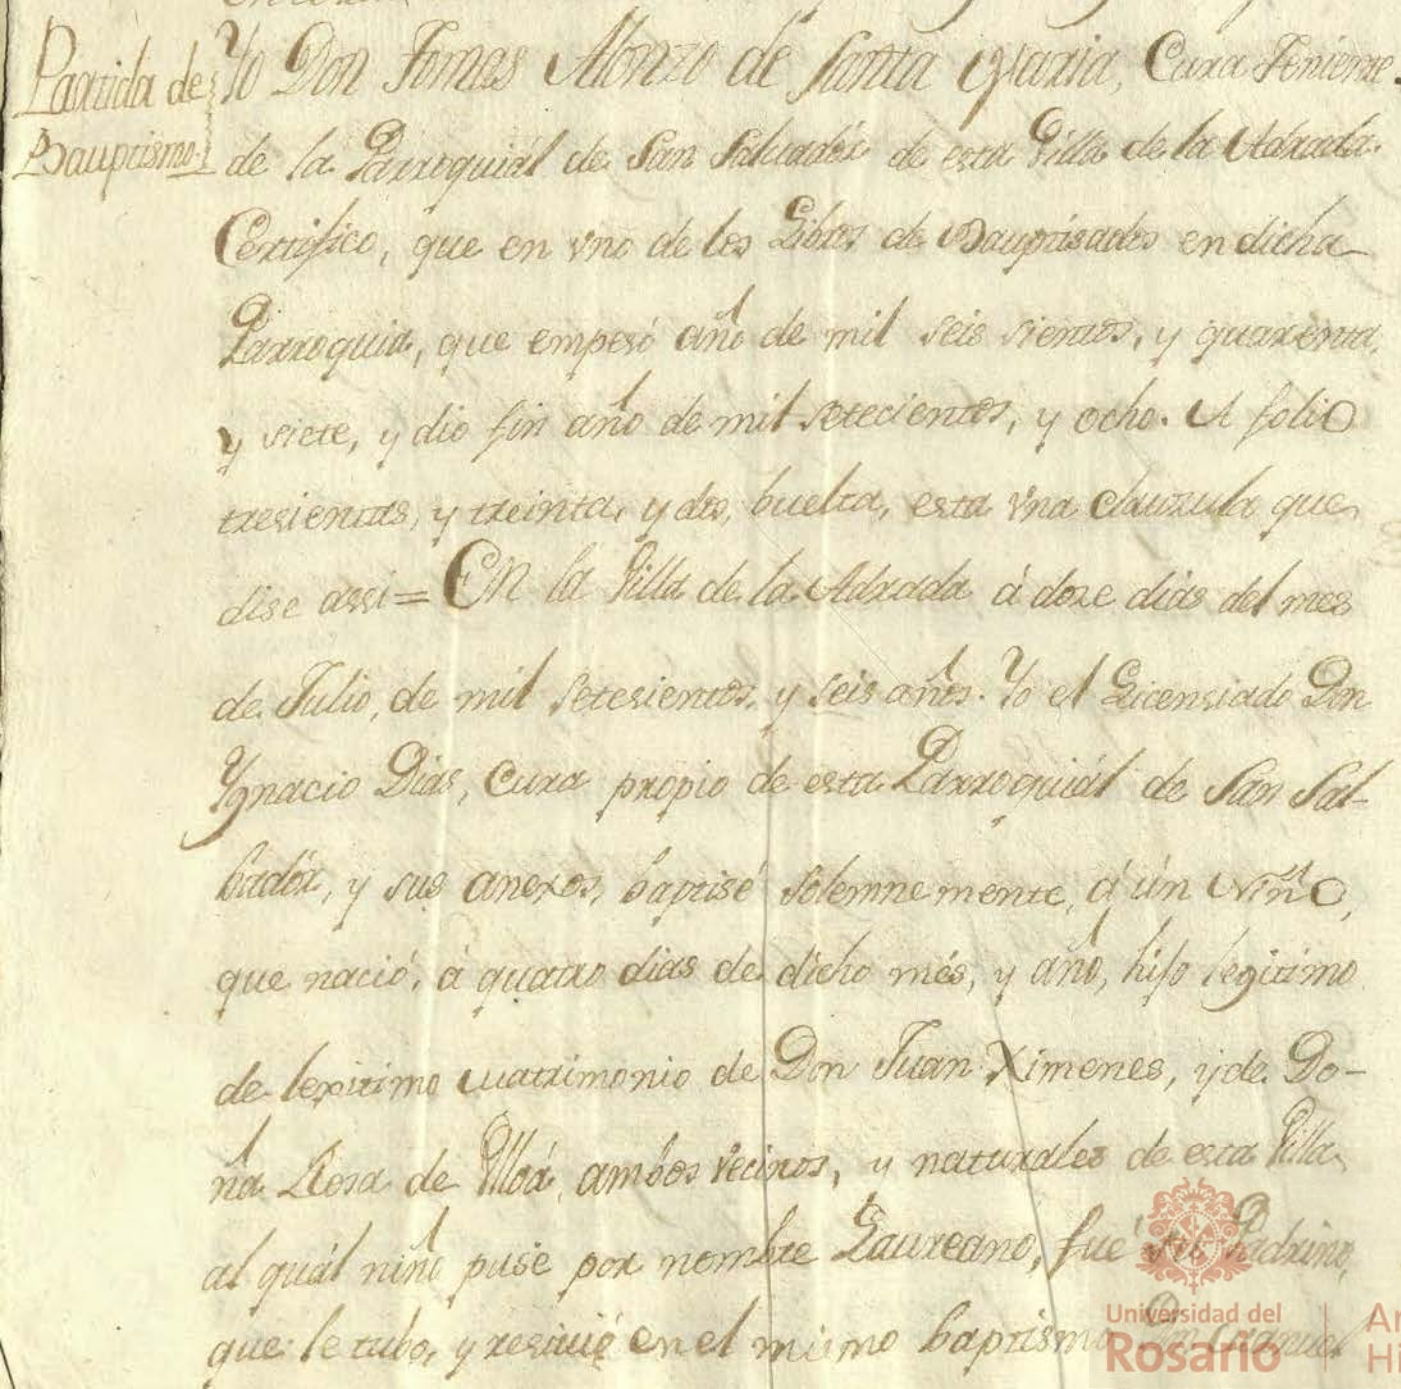 Partida de
Bauptismo.
Yo Don Tomas Alonzo de Santa Maria, Cura Teniente.
de la Parroquiál de San Saluadór de esta Villa de la Adrada.
Certifico, que en vno de los Libros de Bauptisados en dicha
Parroquia, que empesó año de mil seis sientos, y quarenta,
y siete, y dio fin año de mil setecientos, y ocho. A folio
tresientos, y treinta, y dos, buelta, esta vna clauzula que
dise assi = En la Villa de la Adrada á dose dias del mes
de Julio, de mil setesientos, y seis años. Yo el Licensiado Don
Ygnacio Dias, Cura propio de esta Parroquiál de San Sal-
badór, y sus anexos, baptisé solemnemente, á ún Niño,
que nació, á quatro dias de dicho més, y año, hijo legitimo
de lexitimo Matrimonio de Don Juan Ximenes, y de Do-
ña Rosa de Ulloá, ambos vecinos, y naturales de esta Villa,
al quál niño puse por nombre Laureano, fué su Padrino,
que le tubo, y resiuió en el mismo baptismo Don Manuel
Universidad del
Rosario
Ar
Hi